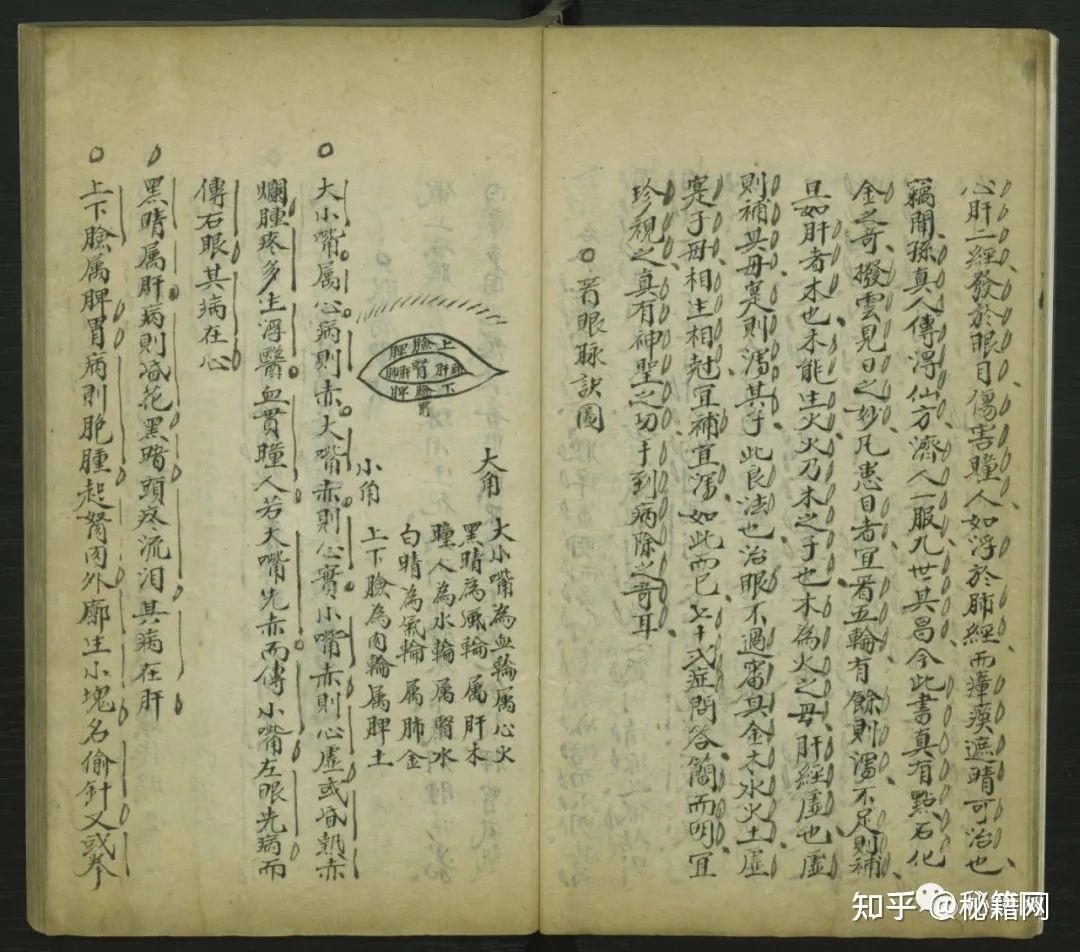 心肝二經發於眼目傷害瞳人如浮於肺經而瘴瘼遮睛可治也
竊聞孫真人傳淂仙方濟人一服九世其昌今此書真有點石化
金之奇撥雲見日之妙凡患目者宜看五輪有餘則瀉不足則補
且如肝者木也木能生火火乃木之子也木為火之母肝經虛也虛
則補其母寔則瀉其子此良法也治眼不過審其金木水火土虛
寔子母相生相尅宜補宜瀉如此而已七十弍症問答簡而明宜
珍視之真有神聖之功手到病除之奇耳
看眼脉訣圖
上
臉
脾
肺
腎
肝
肺
下
臉
脾
胃
大角
小角
大小嘴為血輪属心火
黑睛為風輪属肝木
瞳人為水輪属腎水
白睛為氣輪属肺金
上下臉為肉輪属脾土
大小嘴属心病則赤大嘴赤則心實小嘴赤則心虛或昏熱赤
爛腫疼多生浮醫血貫瞳人若大嘴先赤而傳小嘴左眼先病而
傳右眼其病在心
黑睛属肝病則花黑暗頭疼流泪其病在肝
上下臉属脾胃病則胞腫起胬肉外廓生小塊名偷針又或拳
知乎 @秘籍网